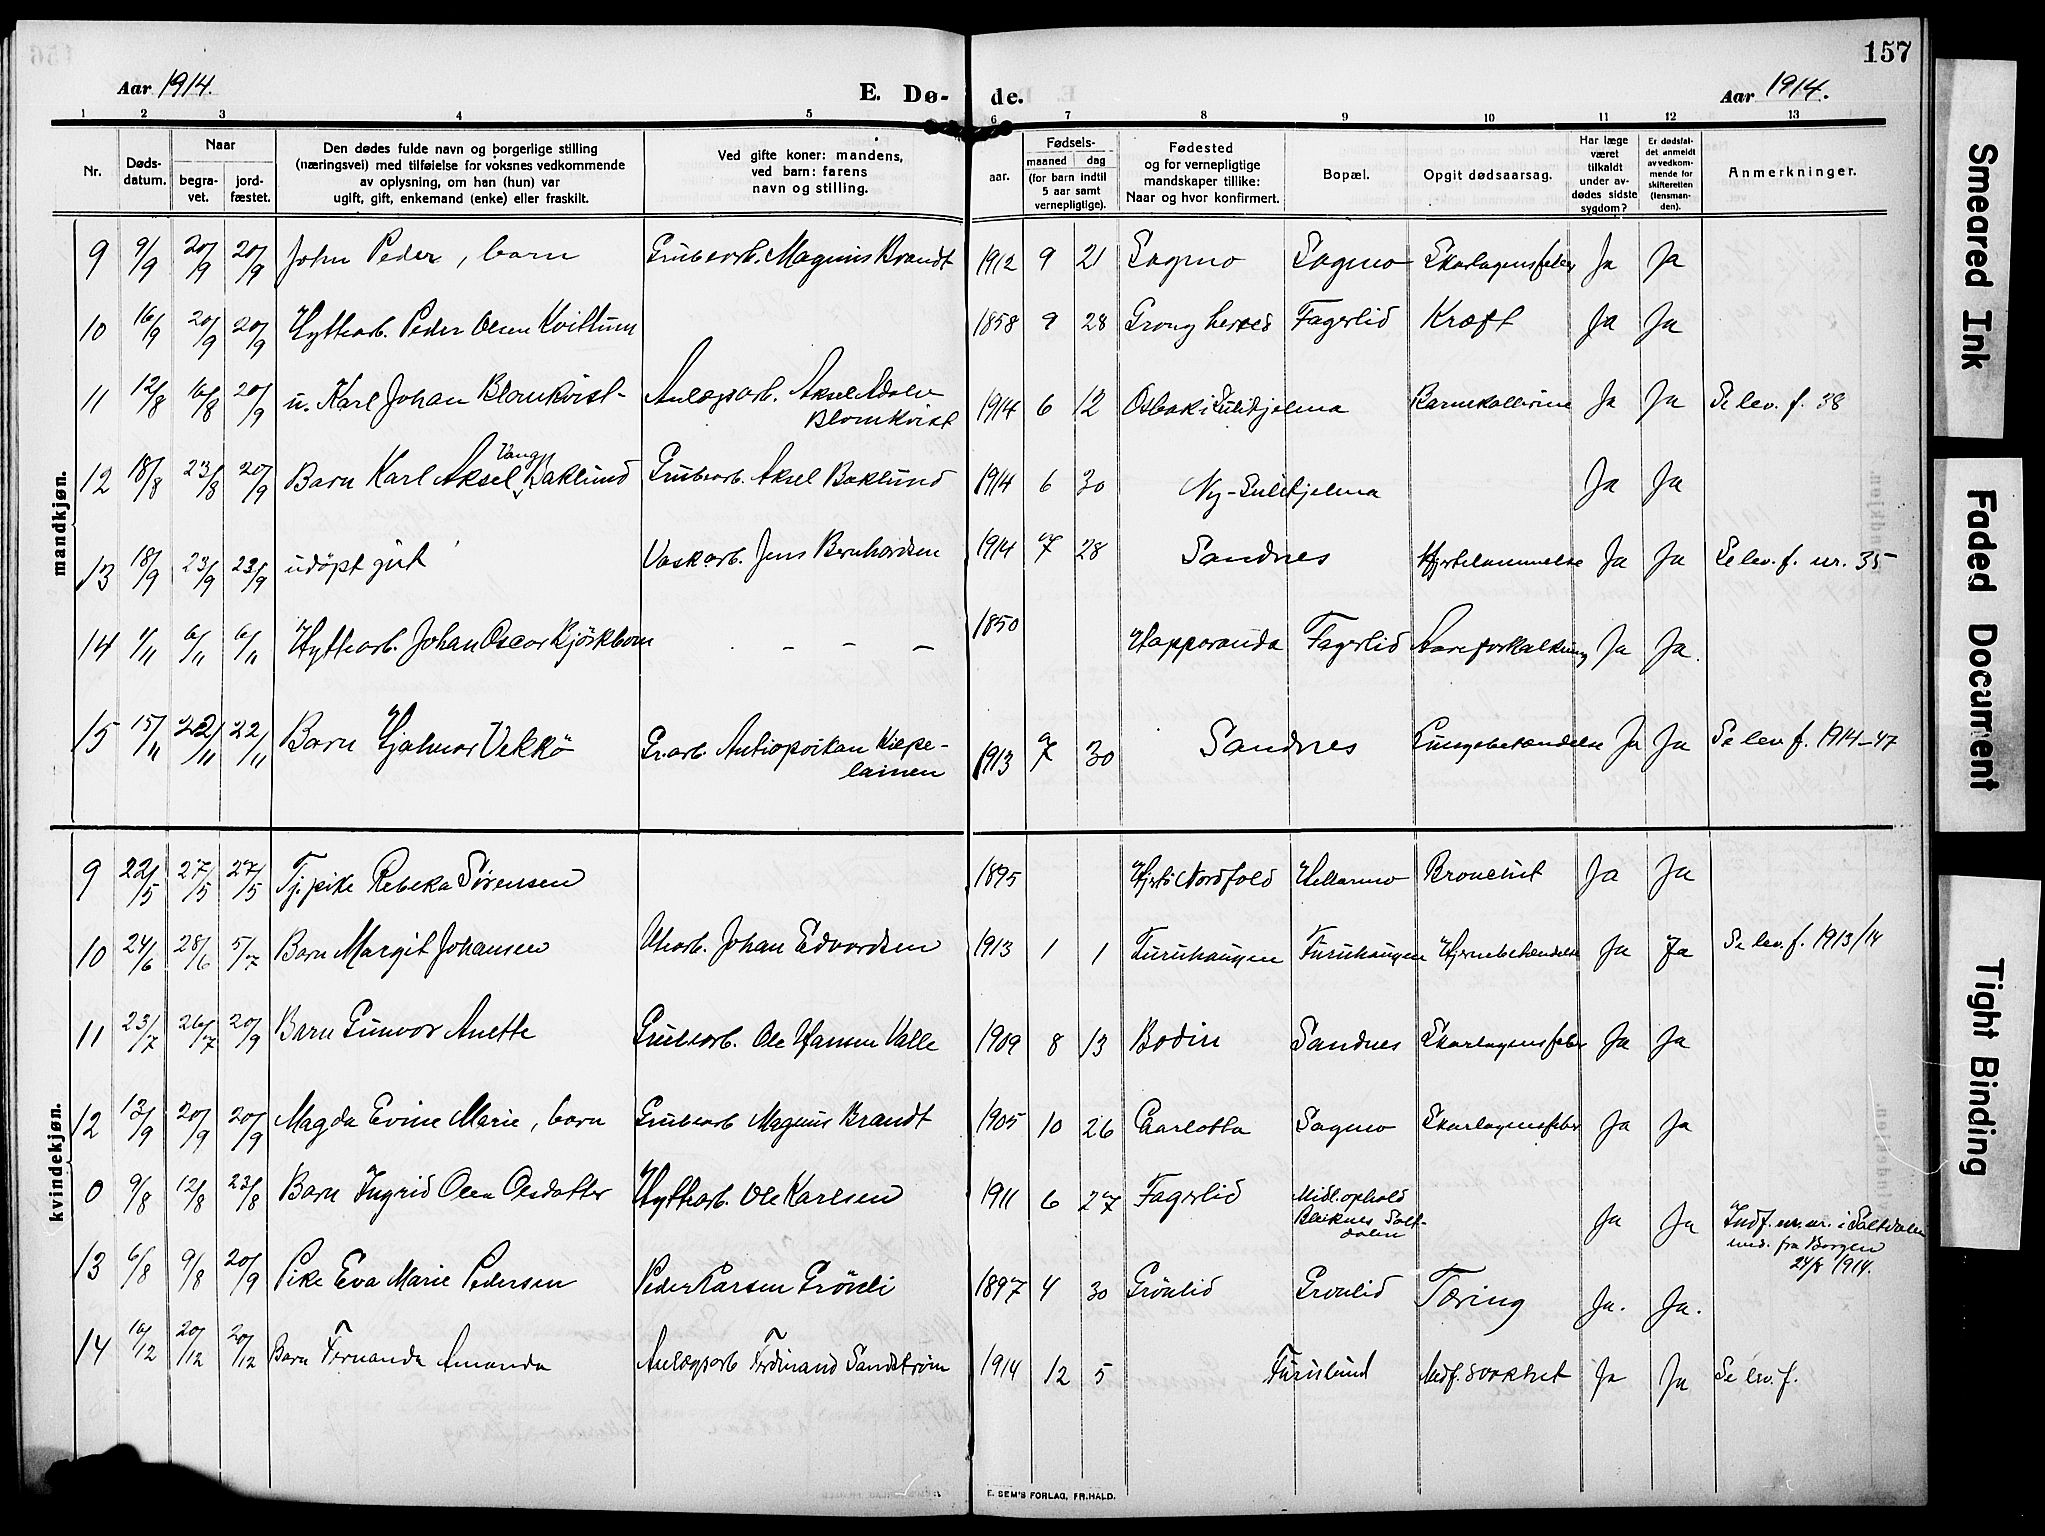 157
Aar 1914.
E. Dø- de.
Aar 1914.
1 2 3 4 5 6 7 8 9 10 11 12 13
Nr.
Døds-
datum.
Naar
begra-
vet.
jord-
fæstet.
Den dødes fulde navn og borgerlige stilling
(næringsvei) med tilføielse for voksnes vedkommende
av oplysning, om han (hun) var
ugift, gift, enkemand (enke) eller fraskilt.
Ved gifte koner: mandens,
ved barn: farens
navn og stilling.
aar.
Fødsels-
maaned dag
(for barn indtil
5 aar samt
vernepligtige).
Fødested
og for vernepligtige
mandskaper tillike:
Naar og hvor konfirmert.
Bopæl.
Opgit dødsaarsag.
Har læge
været
tilkaldt
under av-
dødes sidste
sygdom?
Er dødsfal-
det anmeldt
av vedkom-
mende for
skifteretten
(lensman-
den).
Anmerkninger.
mandkjøn.
9 9/9 20/9 20/9 John Peder, barn Grubearb. Magnus Brandt 1912 9 21 Sagmo Sagmo Skarlagensfeber Ja Ja
10 16/9 20/9 20/9 Hyttearb. Peder Olsen Kvittum 1858 9 28 Grong Fagerlid Kræft Ja Ja
11 12/8 16/8 20/9 u. Karl Johan Blomkvist Anlægsarb. Aksel
Blomkvist 1914 6 12 Osbak i Sulitjelma Ja Ja Se lev. f. 38
12 18/8 23/8 20/9 Barn Karl Aksel Vang Baklund Grubearb. Aksel Baklund 1914 6 30 Ny-Sulitjelma Ja Ja
13 18/9 23/9 23/9 udöpt gut Vaskarb. Jens Bernhardsen 1914 7 28 Sandnes Hjertelammelse Ja Ja Se lev. f. nr. 35
14 1/11 6/11 6/11 Hyttearb. Johan Oscar Bjørkbom - - - 1850 Happaranda Fagerlid Aareforkalkning Ja Ja.
15 15/11 22/11 22/11 Barn Hjalmar Vekkö Gr.arb. Antiopoikan Kiepe-
lainen 1913 7 30 Sandnes Lungebetændelse Ja Ja Se lev. f. 1914-47
kvindekjøn.
9 22/5 27/5 27/5 Tj.pike Rebeka Sørensen 1895 Nordfold Hellarmo Bronchit Ja Ja
10 24/6 28/6 5/7 Barn Margit Johansen Johan Edvardsen 1913 1 1 Furuhaugen Furuhaugen Hjernebetændelse Ja Ja Se lev. f. 1913/14
11 23/7 26/7 20/9 Barn Gunvor Anette Grubearb. Ole Hansen Valle 1909 8 13 Bodin Sandnes Skarlagensfeber Ja Ja
12 13/9 20/9 20/9 Magda Evine Marie, barn Grubearb Magnus Brandt 1905 10 26 Carlotta Sagmo Skarlagensfeber Ja Ja
0 9/8 12/8 23/8 Barn Ingrid Olea Olsdatter Hyttearb. Ole Karlsen 1911 6 27 Fagerlid Midl. ophold
Bleiknes Salt-
dalen Ja Ja Indf. u. nr. i Saltdalen
med. fra Borgen
24/8 1914.
13 6/8 9/8 20/9 Pike Eva Marie Pedersen Peder Larsen Grönli 1897 4 30 Grönlid Grönlid Tæring Ja. Ja.
14 16/12 20/12 20/12 Barn Fernanda Amanda Anlægsarb Ferdinand Sandström 1914 12 5 Furulund Medf. svakhet Ja Ja Se lev. f.
E. SEM'S FORLAG, FR.HALD.
Smeared Ink
Faded Document
Tight Binding